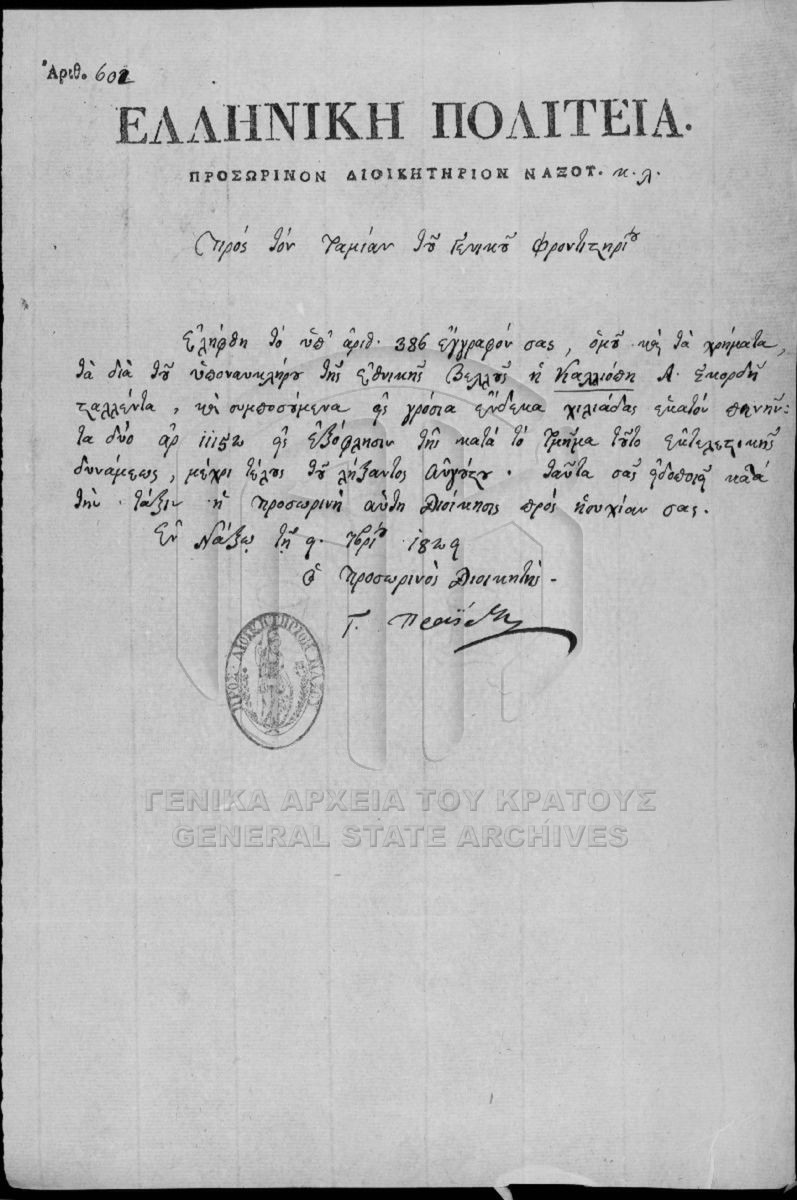 Ἀριθ. 602
ΕΛΛΗΝΙΚΗ ΠΟΛΙΤΕΙΑ.
ΠΡΟΣΩΡΙΝΟΝ ΔΙΟΙΚΗΤΗΡΙΟΝ ΝΑΞΟΥ. κ. λ.
Πρὸς τὸν Ταμίαν τοῦ Γενικοῦ Φροντιστηρίου
Ἐλήφθη τὸ ὑπ' ἀριθ. 386 ἔγγραφόν σας, ὁμοῦ καὶ τὰ χρήματα,
τὰ διὰ τοῦ ὑποναυκλήρου τῆς ἐθνικῆς Βελλοῦς ἡ Καλλιόπη Α.
ταλλέντα, καὶ συμποσούμενα εἰς γρόσια ἕνδεκα χιλιάδας ἑκατὸν πενῆν-
τα δύο ἀρ 11152 εἰς ἐξόφλησιν τῆς κατὰ τὸ τμῆμα τοῦτο ἐκτελεστικῆς
δυνάμεως, μέχρι τέλους τοῦ λήξαντος αὐγούστου. ταῦτα σᾶς εἰδοποιεῖ κατὰ
τὴν τάξιν ἡ προσωρινὴ αὕτη Διοίκησις πρὸς ἡσυχίαν σας.
Ἐν Νάξῳ τῇ 9. 7βρίου 1829
Ὁ προσωρινὸς Διοικητὴς
Γ.
ΠΡΟΣ. ΔΙΟΙΚΗΤΗΡΙΟΝ ΝΑΞΟΥ
ΓΕΝΙΚΑ ΑΡΧΕΙΑ ΤΟΥ ΚΡΑΤΟΥΣ
GENERAL STATE ARCHIVES